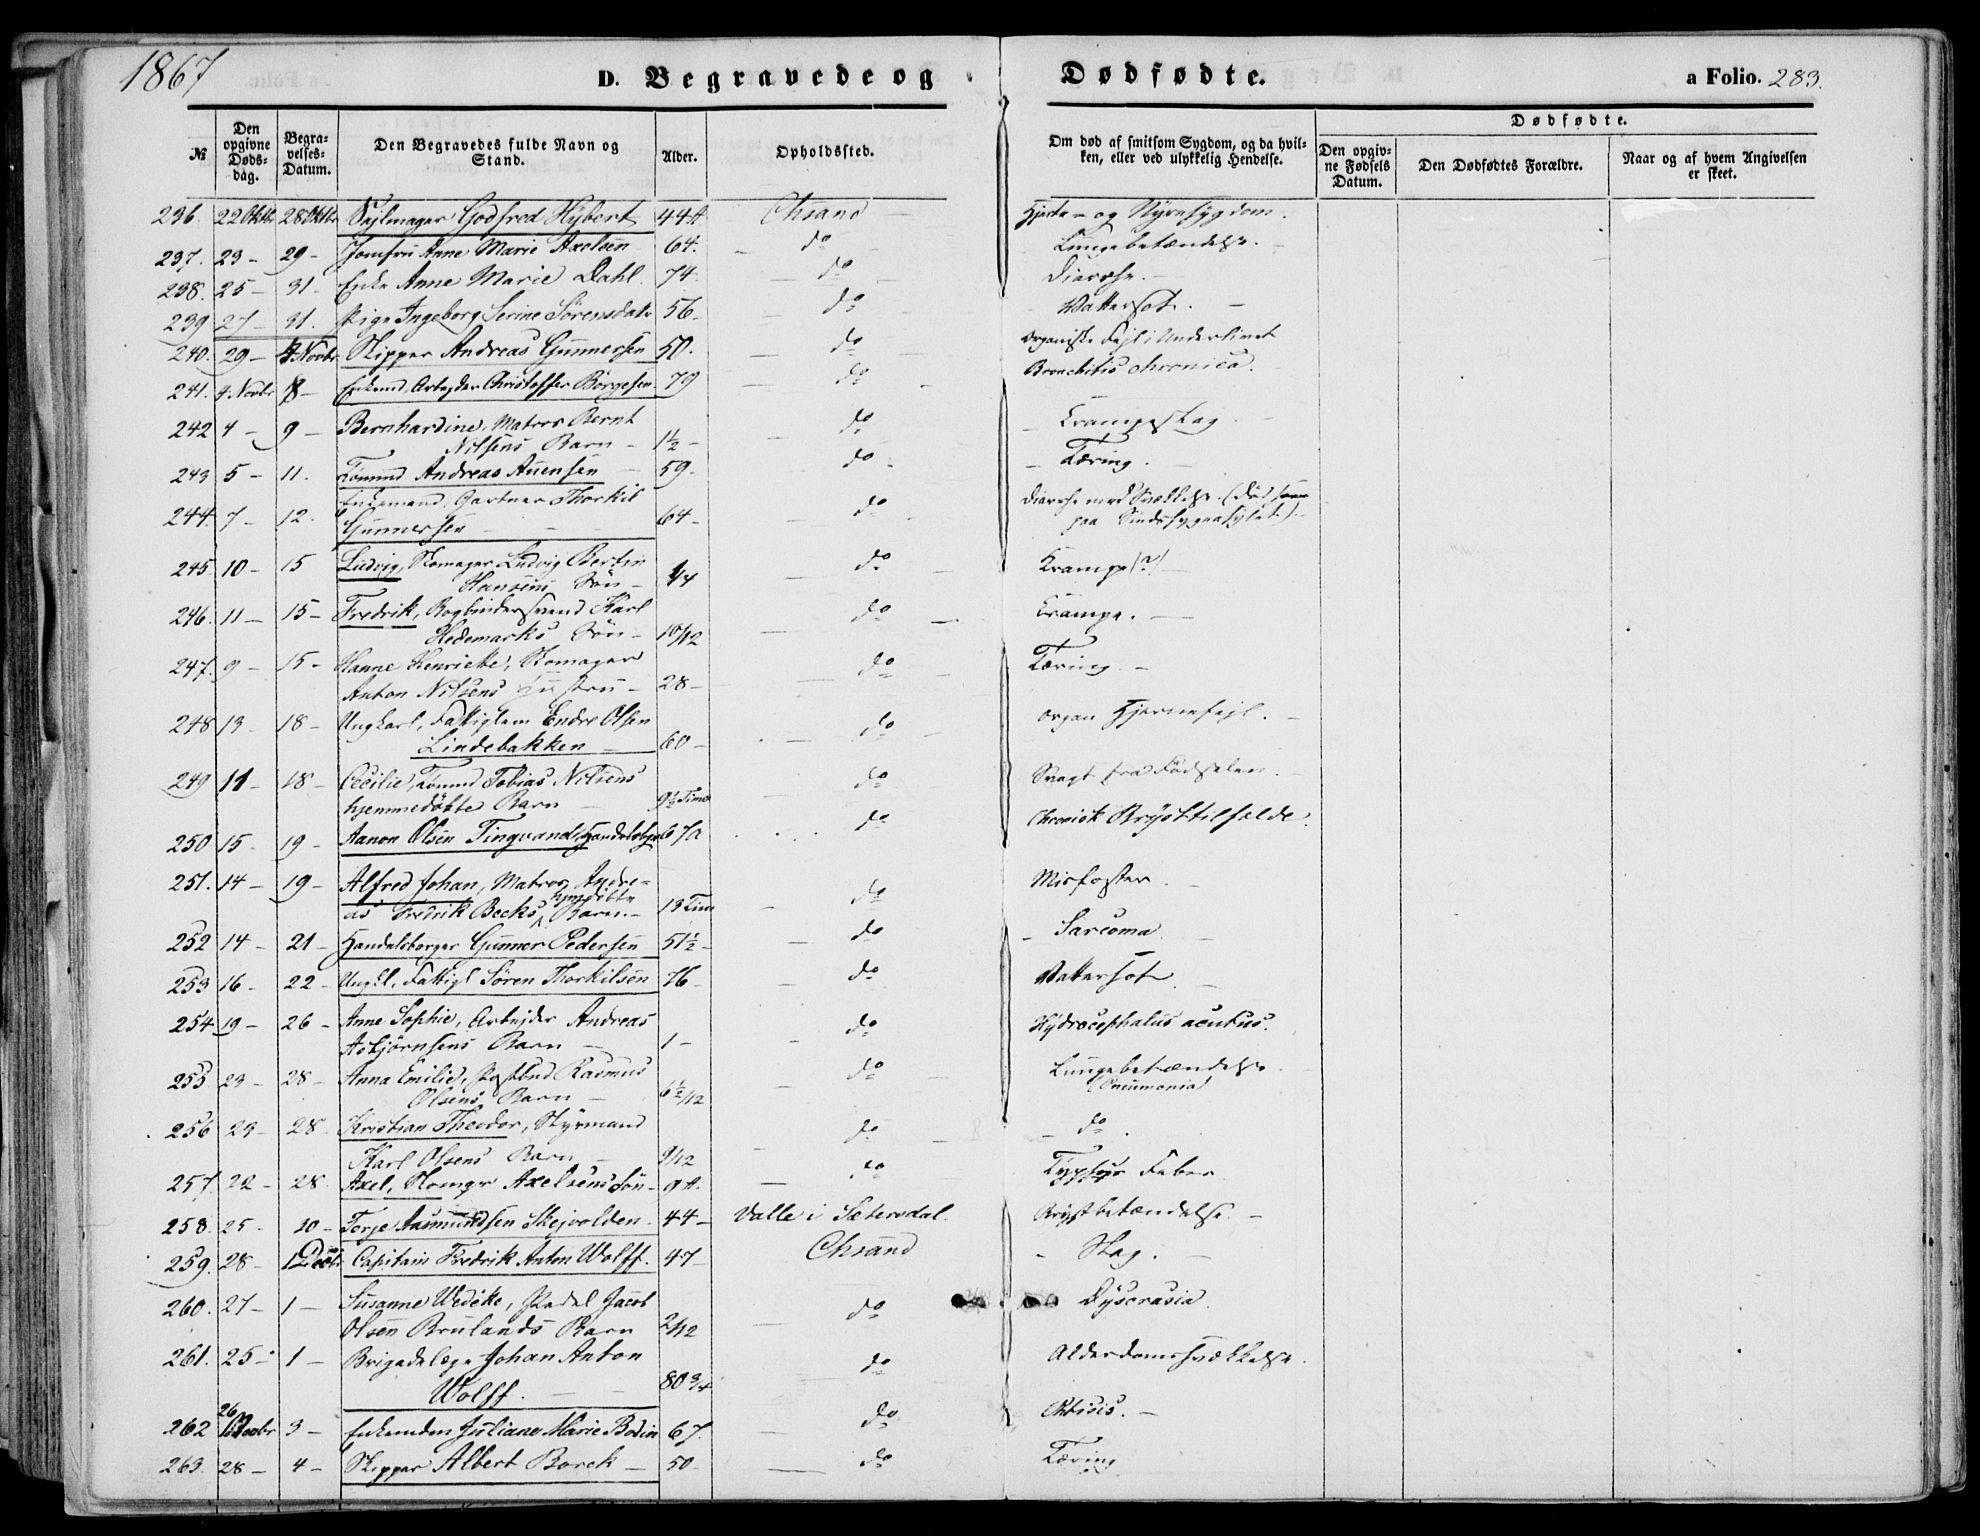 1867
D. Begravede og Dødfødte. a Folio. 283.
№ Den opgivne Døds-dag. Begra-velses-Datum. Den Begravedes fulde Navn og Stand. Alder. Opholdssted. Om død af smitsom Sygdom, og da hvil-ken, eller ved ulykkelig Hendelse. Dødfødte. Den opgiv-ne Fødsels Datum. Den Dødfødtes Forældre. Naar og af hvem Angivelsen er skeet.
236. 22 Oktbr 28 Oktbr Sejlmager Godfred Hybert 44 A Chsand Hjerte- og Nyresygdom.
237. 23 - 29 - Jomfru Anne Marie Axelsen 64. do Lungebetændelse.
238. 25 - 31 - Enke Anne Marie Dahl. 74. do Diarrhe. -
239 27 - 31. Pige Ingeborg Serine Sørensdatr 56 - do Vattersot. -
240. 29 - 4 Novbr Skipper Andreas Gunnersen 50. do Organiske Fejl i Underlivet
241. 4 Novbr 8 - Enkemd. Arbejder Christoffer Børgesen. 79 do Bronchitis chronica.
242 4 - 9 - Bernhardine, Matros Bernt
Nilsens Barn - 1½ - do Krampeslag.
243 5 - 11. Tømmd Andreas Auensen 59. do Tæring.
244. 7 - 12. Enkemand, Gartner Thorkil
Gunnersen - 64 - do Diarrhe med Svækkelse. (Død
paa Sindssygeasylet.)
245 10 - 15 Ludvig, Skomager Ludvig Bertin
Hansens Søn - 1/4 do Krampe (?)
246. 11 - 15 - Fredrik, Bogbindersvend Karl
Hedemarks Søn - 10/12 do Krampe. -
247. 9 - 15 - Hanne Henriette, Skomager
Anton Nilsens Hustru - 28 - do Tæring. -
248 13 - 18 - Ungkarl, Fattiglem Endre Olsen
Lindebakken - 60 - do Organ Hjernefejl. -
249 11 - 18 - Cecilie, Tømmd Tobias Nilsens
hjemmedøbte Barn - 9½ Time do Svagt fra Fødselen.
250 15 - 19 - Aanon Olsen Tingvand, Handelsbgr 67 A do Chronisk Brysttilfælde.
251. 14 - 19 - Alfred Johan, Matros Andre-
as Fredrik Becks hjmdøbte Barn. - 13 Tim do Misfoster.
252 14 - 21 - Handelsborger Gunner Pedersen 51½ - do Sarcoma.
253 16 - 22 - Ungkl. Fattigl Søren Thorkilsen 76 - do Vattersot.
254 19 - 26 - Anne Sophie, Arbejder Andreas
Asbjørnsens Barn - 1 - do Hydrocephalus acutus.
255 23 - 28 - Anna Emilie, Postbud Rasmus
Olsens Barn - 6½/12 do Lungebetændelse.
(Pneumonia)
256 23 - 28. Kristian Theodor, Styrmand
Karl Olsens Barn - 9/12 do do.
257. 22 - 28. Axel, Skomgr Axelsens Søn - 9 A. do Typhus Feber
258. 25 - 10 - Torje Aasmundsen Skejvolden - 44 - Valle i Sætersdal. Brystbetændelse. -
259. 28 - 1 Decbr Capitain Fredrik Anton Wolff. 47 - Chsand Slag.
260. 27 - 1 - Susanne Wedike, Pedel Jacob
Olsen Brulands Barn 2/12 do Dyscrasia.
261. 25 - 1 - Brigadelæge Johan Anton
Wolff. - 80 3/4 do Alderdomssvækkelse.
262 26 Novbr 3 - Enkemden Juliane Marie Bodin 67. do Phtisis. -
263. 28 - 4 - Skipper Albert Borck - 50 - do Tæring